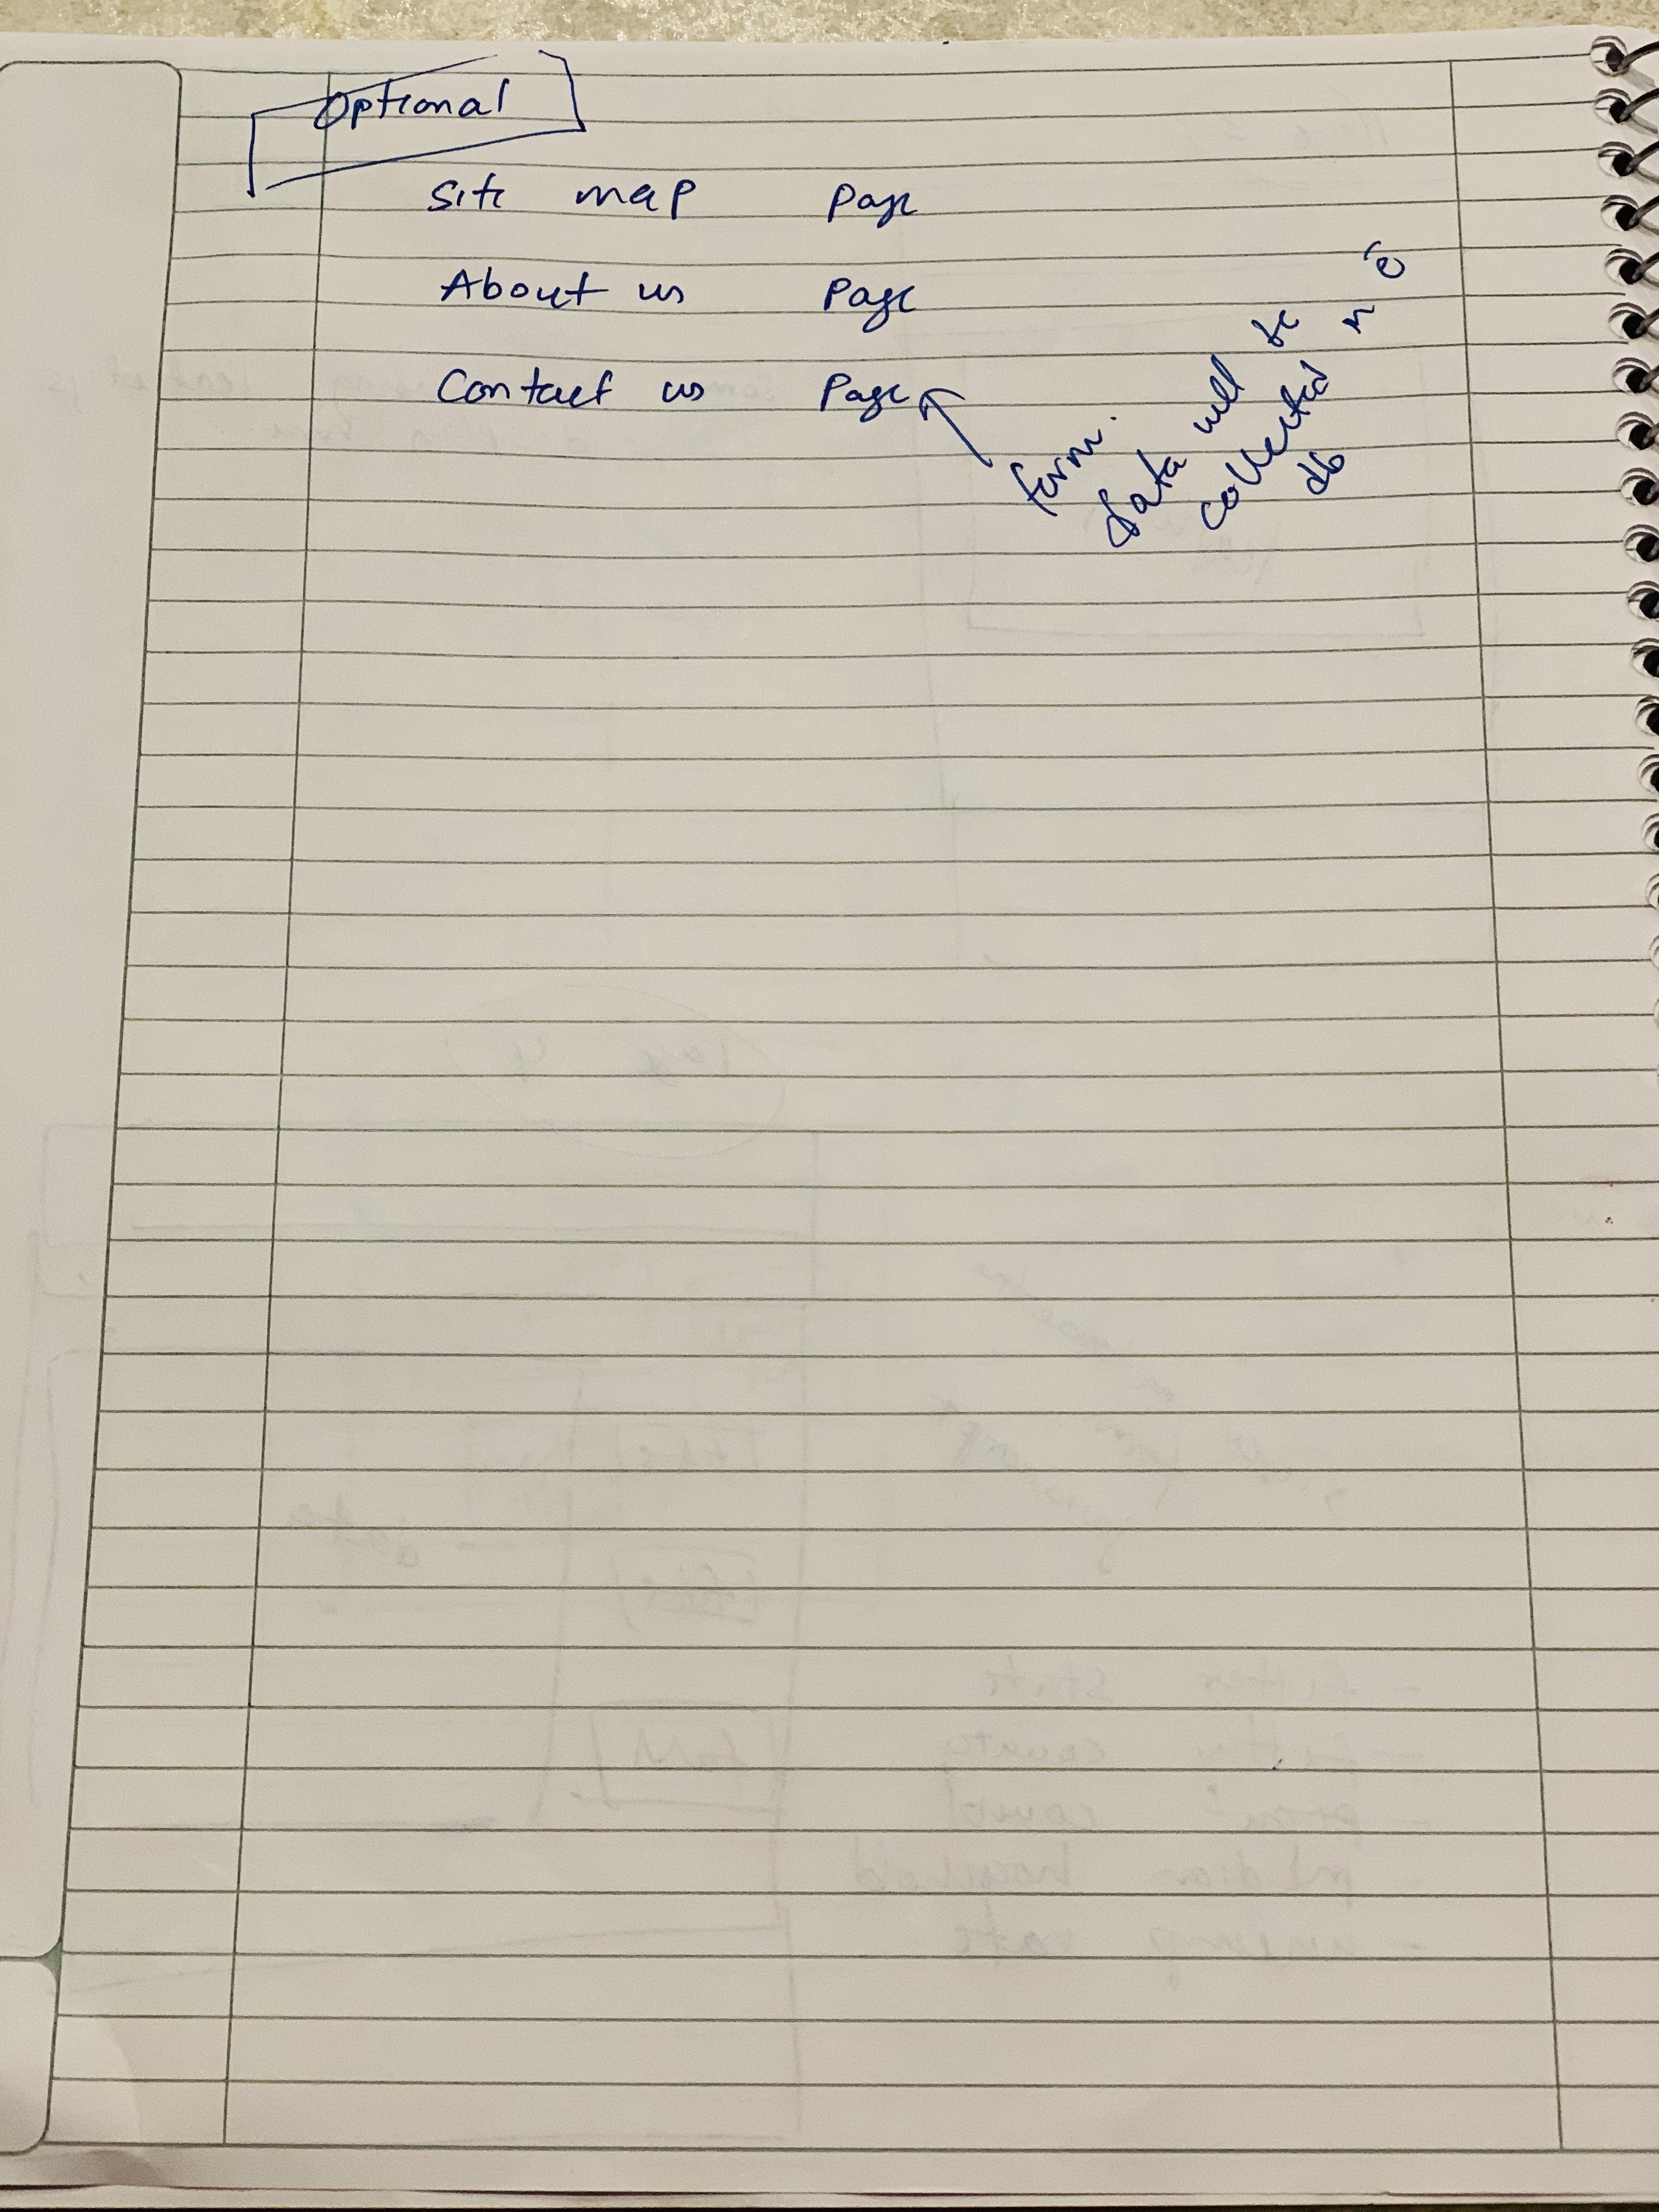 Optional
Site map Page
About us Page
Contact us Page
form.
data will be
collected in a
db